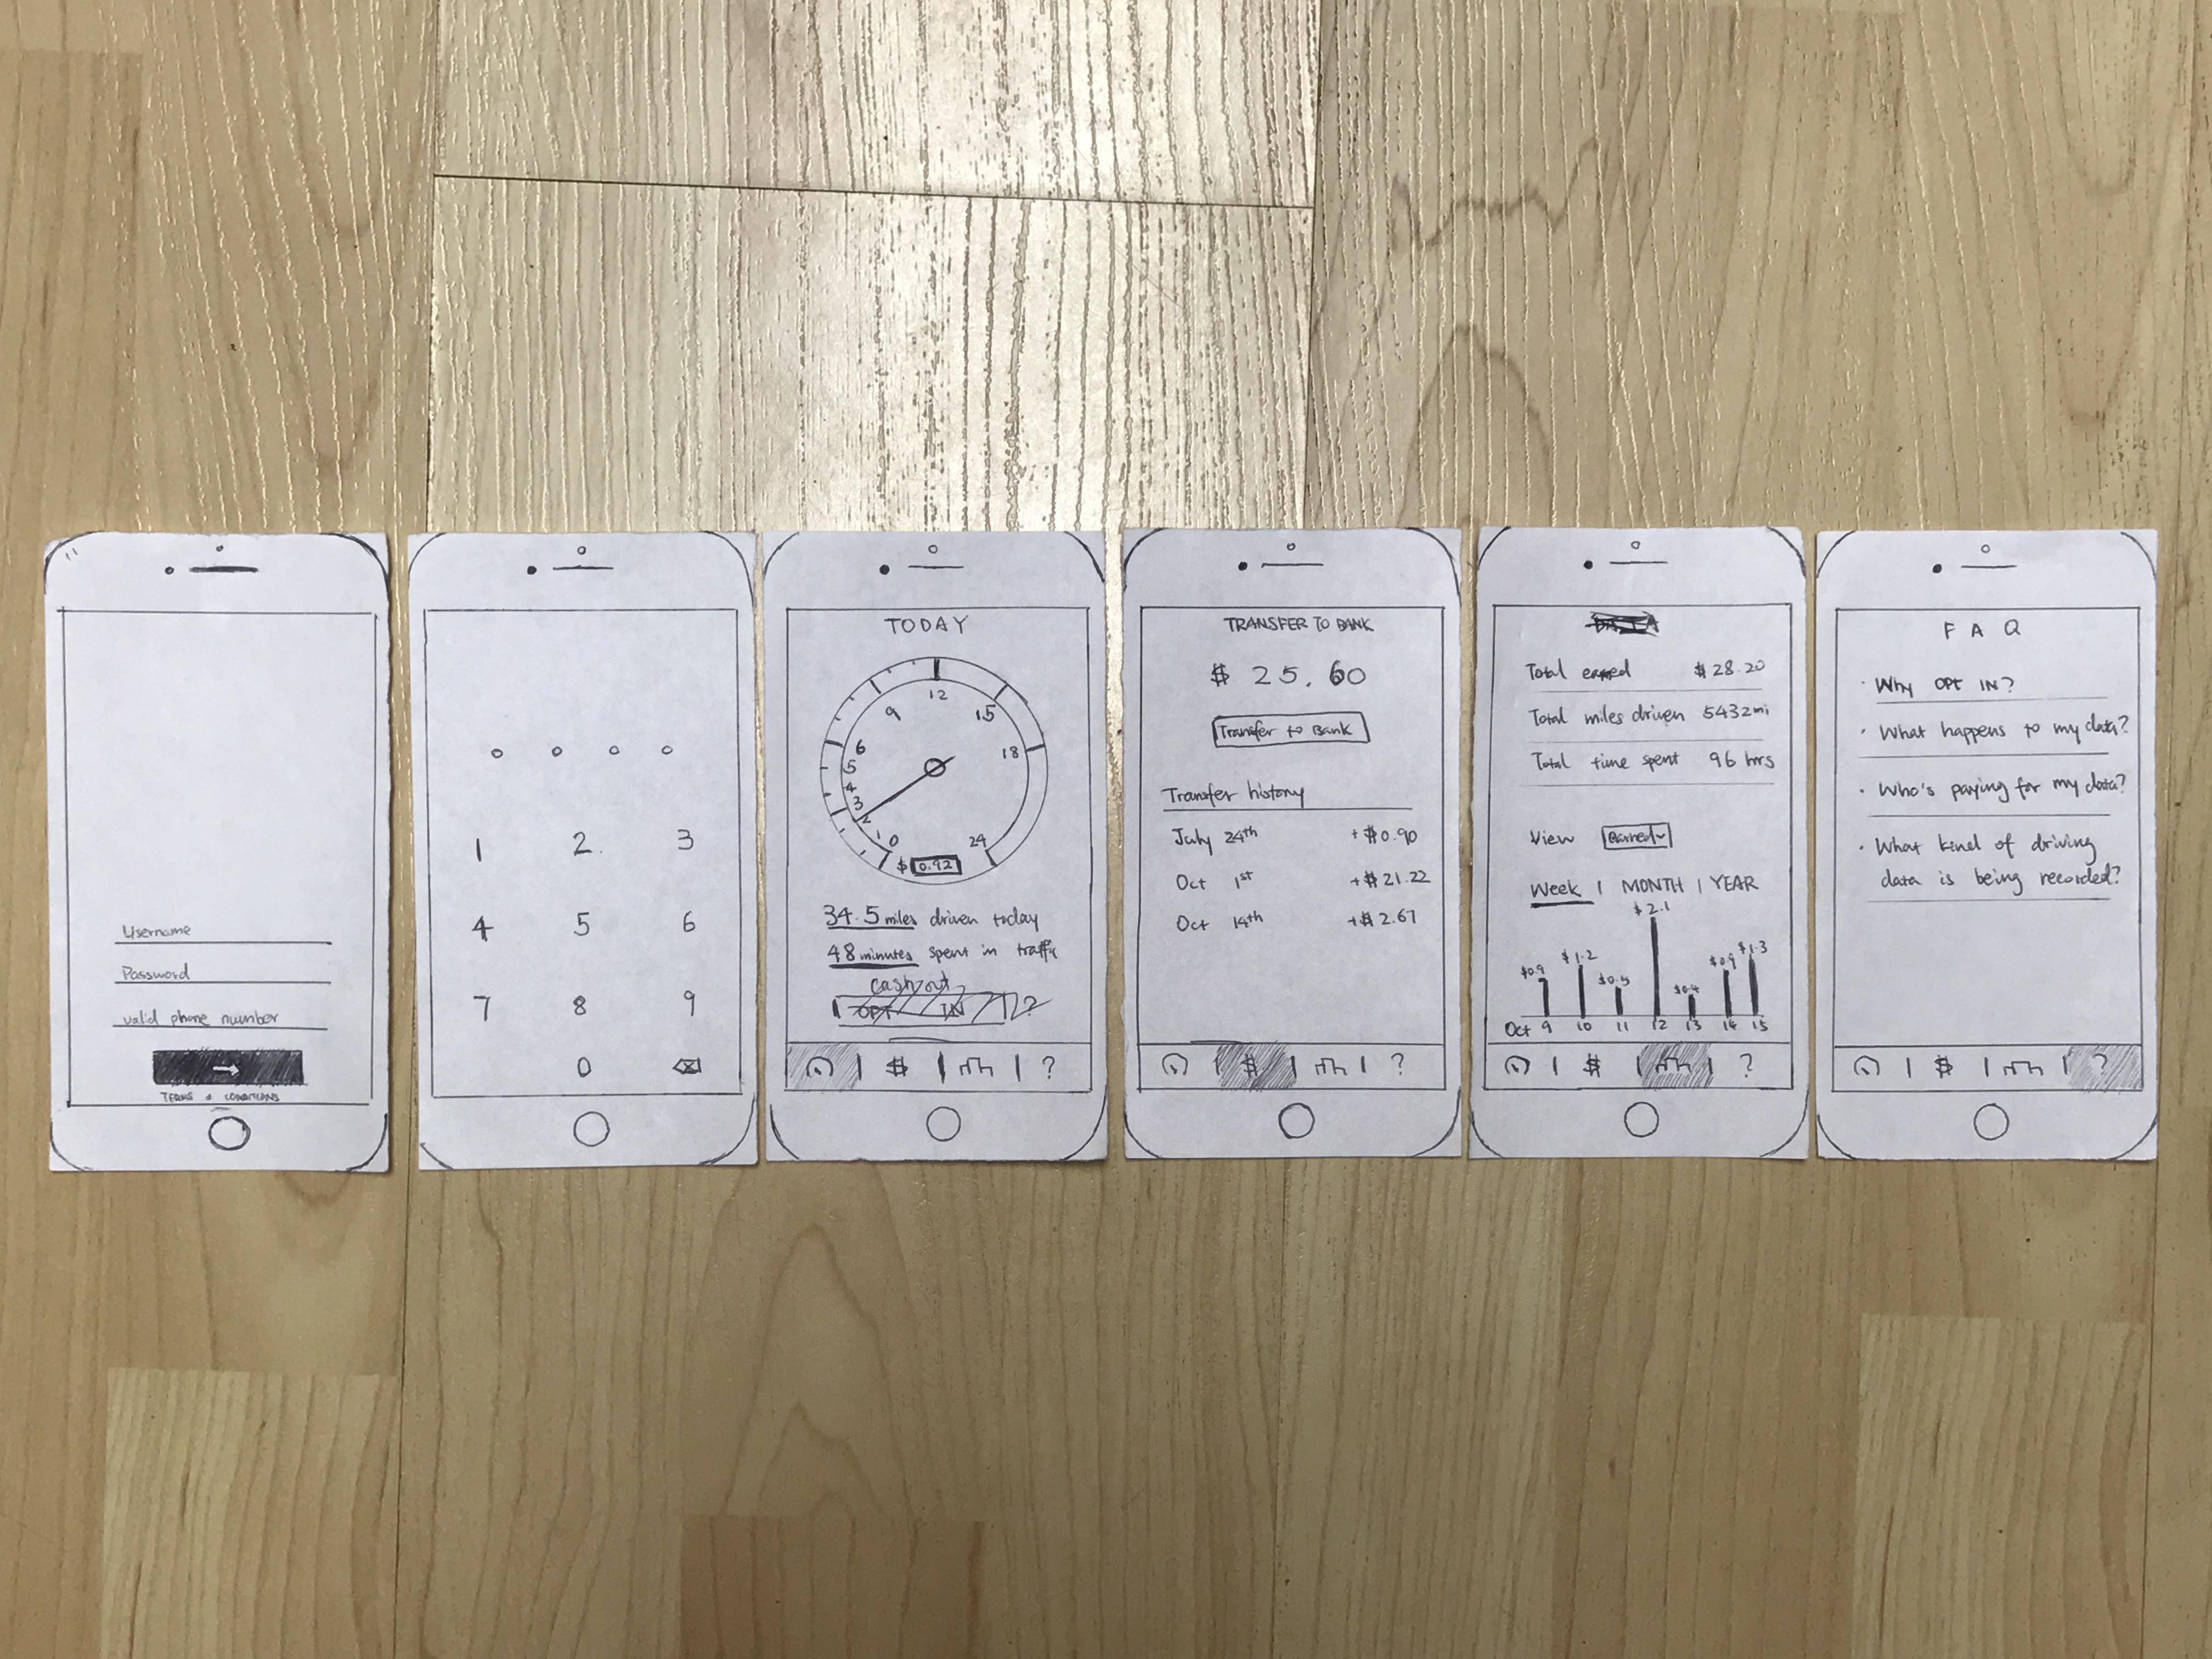 Username
Password
valid phone number
→
TERMS & CONDITIONS
1 2 3
4 5 6
7 8 9
0
TODAY
0 1 2 3 4 5 6 9 12 15 18 24
$ 0.92
34.5 miles driven today
48 minutes spent in traffic
cash out
OPT IN ?
$ ?
TRANSFER TO BANK
$ 25.60
Transfer to Bank
Transfer history
July 24th +$0.90
Oct 1st +$21.22
Oct 14th +$2.67
$ ?
Total earned $28.20
Total miles driven 5432mi
Total time spent 96 hrs
View Earned
Week | MONTH | YEAR
$0.9 $1.2 $0.5 $2.1 $0.4 $0.9 $1.3
Oct 9 10 11 12 13 14 15
$ ?
F A Q
· Why OPT IN?
· What happens to my data?
· Who's paying for my data?
· What kind of driving
data is being recorded?
$ ?